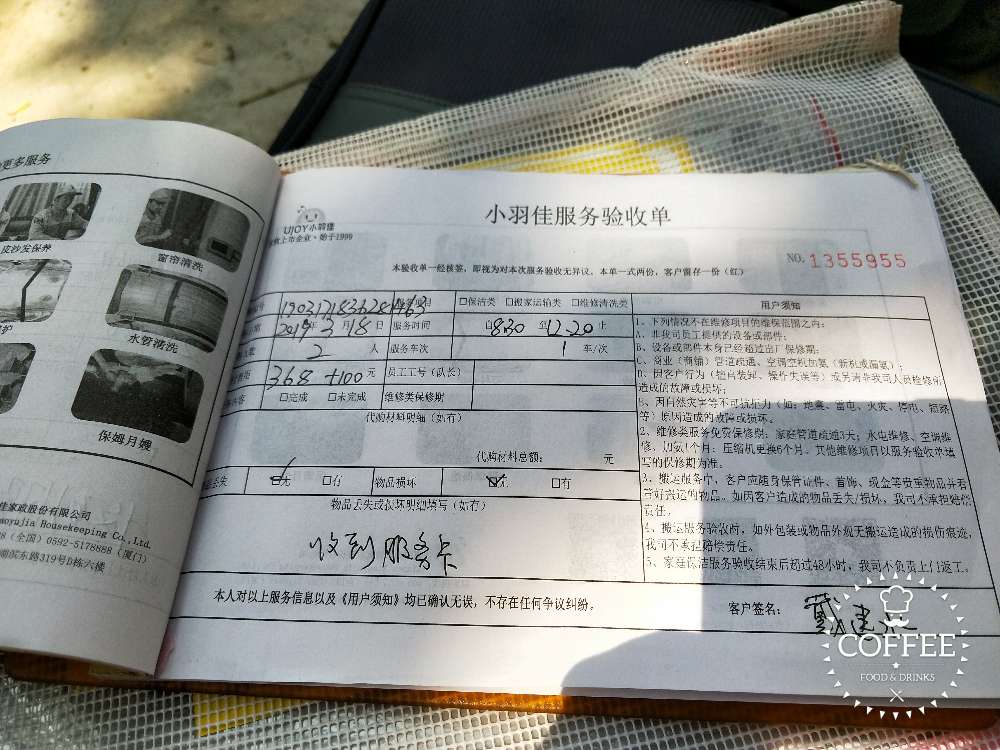 更多服务
皮沙发保养
窗帘清洗
水管清洗
保姆月嫂
佳家政股份有限公司
aoyujia Housekeeping Co.,Ltd.
(全国) 0592-5178888 (厦门)
湖滨东路319号D栋六楼
UJOY小羽佳
上市企业·始于1999
小羽佳服务验收单
本验收单一经核签，即视为对本次服务验收无异议。本单一式两份，客户留存一份（红）
NO. 1355955
号 服务项目 □保洁类 □搬家运输类 □维修清洗类
2019年3月18日 服务时间 自8:30 至12:20止
2 人 服务车次 1 车/次
368 +100元 员工工号（队长）
□完成 □未完成 维修类保修期
代购材料明细（如有）
代购材料总额： 元
丢失 □无 □有 物品损坏 □无 □有
物品丢失或损坏明细填写（如有）
收到服务卡
本人对以上服务信息以及《用户须知》均已确认无误，不存在任何争议纠纷。
客户签名：
用户须知
1、下列情况不在维修项目的维保范围之内：
A、非我司员工提供的设备或部件；
B、设备或部件本身已经超过出厂保修期；
C、商业（商铺）管道疏通、空调空机加氨（新机或漏氨）；
D、因客户行为（擅自装卸、操作失误等）或另请非我司人员检修所
造成的故障或损坏；
E、因自然灾害等不可抗拒力（如：地震、雷电、火灾、停电、短路
等）原因造成的故障或损坏。
2、维修类服务免费保修期：家庭管道疏通3天；水电维修、空调维
修、加氨1个月；压缩机更换6个月。其他维修项目以服务验收单填
写的保修期为准。
3、搬运服务中，客户应随身保管证件、首饰、现金等贵重物品并看
管好搬运的物品。如因客户造成的物品丢失/损坏，我司不承担赔偿
责任。
4、搬运服务验收前，如外包装或物品外观无搬运造成的损伤痕迹，
我司不承担赔偿责任。
5、家庭保洁服务验收结束后超过48小时，我司不负责上门返工。
COFFEE
FOOD & DRINKS